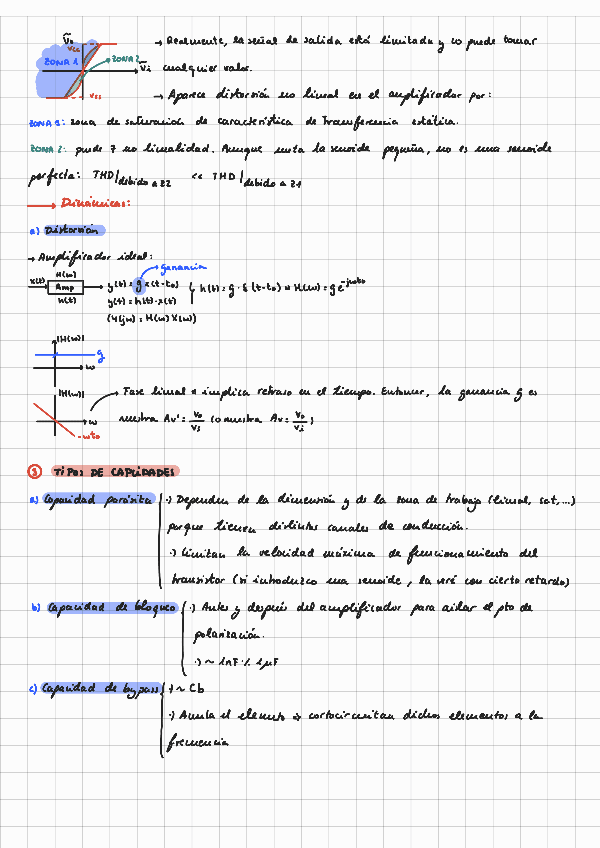 Ṽo
Vcc
→ Realmente, la señal de salida está limitada y no puede tomar
ZONA 1
ZONA 2
Ṽi cualquier valor.
Vss
→ Aparece distorsión no lineal en el amplificador por:
ZONA 1: zona de saturación de característica de transferencia estática.
ZONA 2: puede ∃ no linealidad. Aunque meta la senoide pequeña, no es una senoide
perfecta: THD|debido a z2 << THD|debido a z1
→ Dinámicas:
a) Distorsión
→ Amplificador ideal:
ganancia
x(t) H(w) Amp h(t) y(t) = g x(t-to) h(t) = g · δ(t-to) H(w) = g e^-jwto
y(t) = h(t) · x(t)
(Y(jw) = H(w) X(w))
|H(w)|
g
w
|H(w)|
→ Fase lineal implica retraso en el tiempo. Entonces, la ganancia g es
w
nuestra Av' = vo/vs (o nuestra Av = vo/vi)
-wto
③ TIPOS DE CAPACIDADES
a) Capacidad parásita ·) Dependen de la dimensión y de la zona de trabajo (lineal, sat,...)
porque tienen distintos canales de conducción.
·) Limitan la velocidad máxima de funcionamiento del
transistor (si introduzco una senoide, la veré con cierto retardo)
b) Capacidad de bloqueo ·) Antes y después del amplificador para aislar el pto de
polarización.
·) ~ 1nF ÷ 1µF
c) Capacidad de bypass ·) ~ Cb
·) Anula el elemento cortocircuitan dichos elementos a la
frecuencia